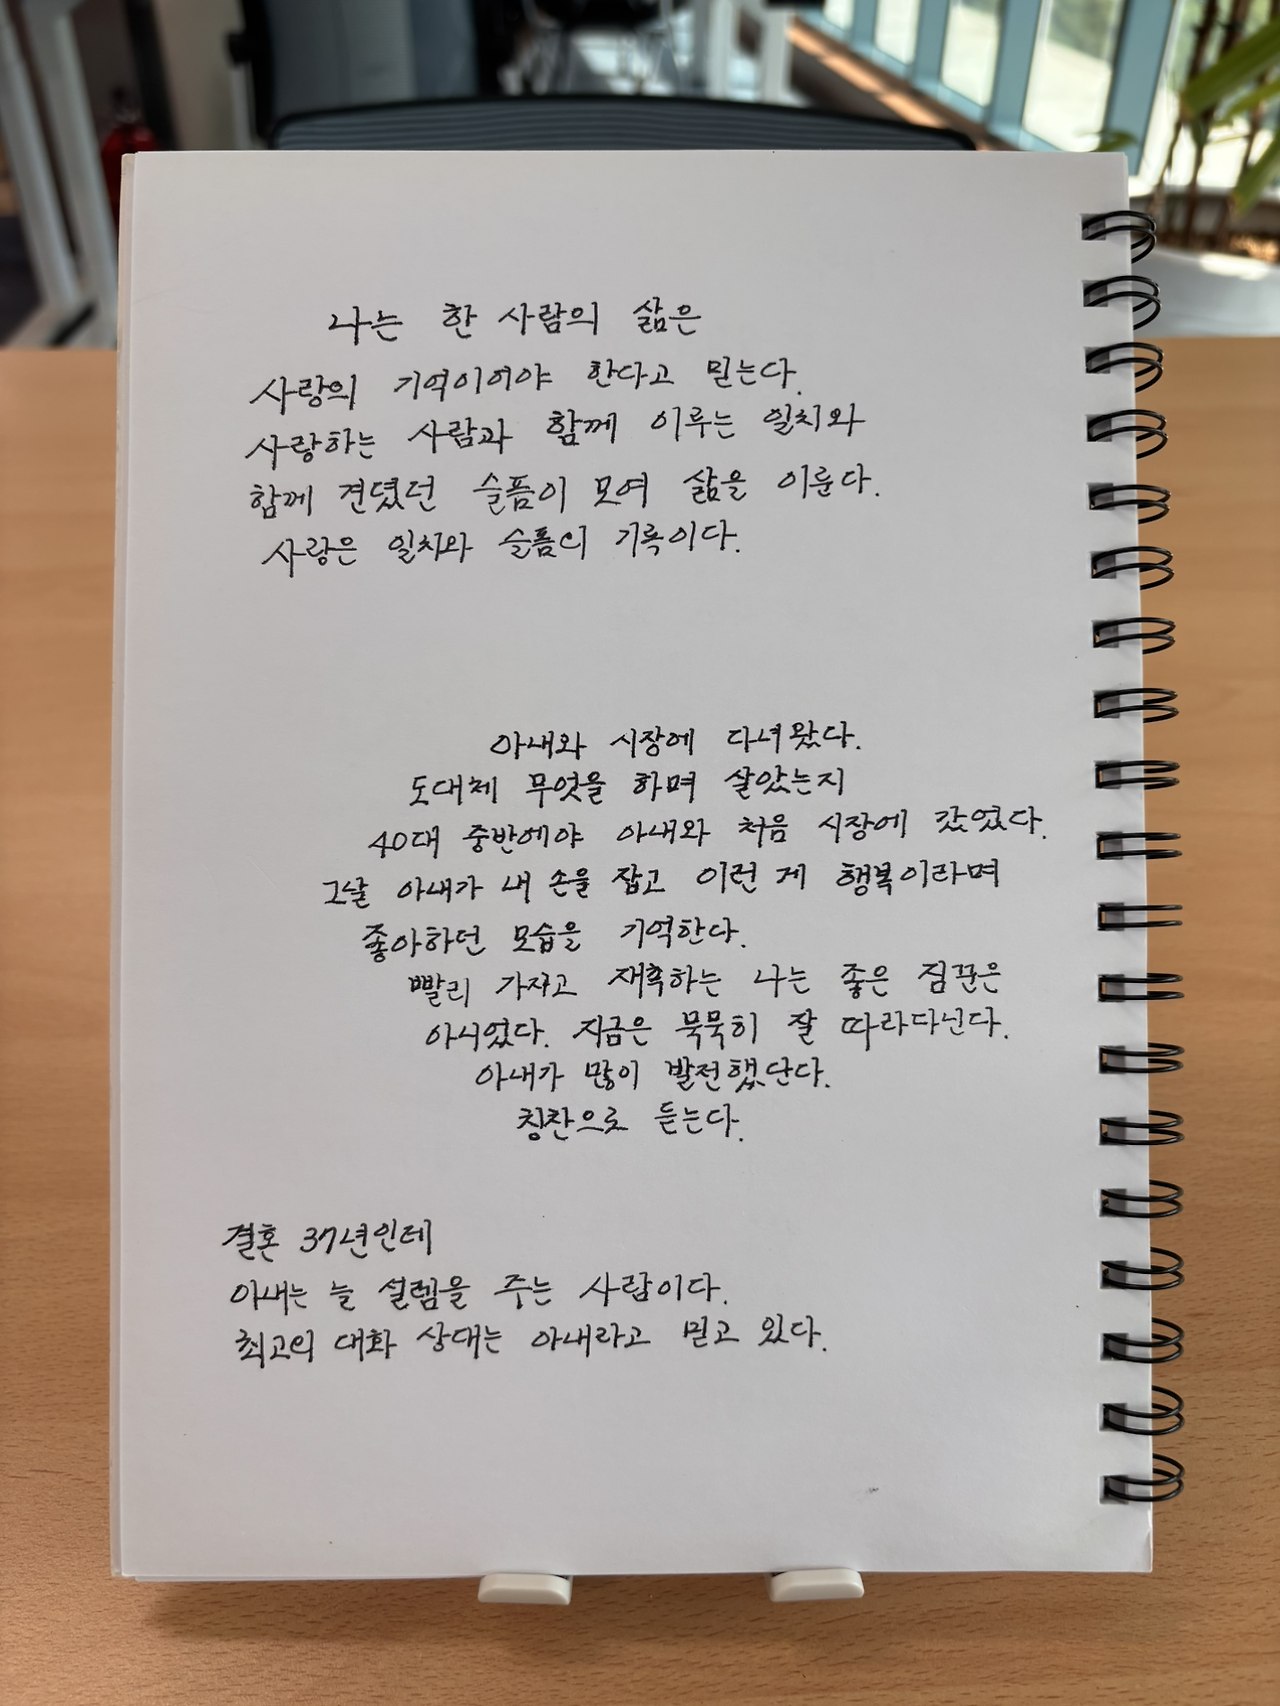 나는 한 사람의 삶은
사랑의 기억이어야 한다고 믿는다.
사랑하는 사람과 함께 이루는 일치와
함께 견뎠던 슬픔이 모여 삶을 이룬다.
사랑은 일치와 슬픔의 기록이다.
아내와 시장에 다녀왔다.
도대체 무엇을 하며 살았는지
40대 중반에야 아내와 처음 시장에 갔었다.
그날 아내가 내 손을 잡고 이런 게 행복이라며
좋아하던 모습을 기억한다.
빨리 가자고 재촉하는 나는 좋은 짐꾼은
아니었다. 지금은 묵묵히 잘 따라다닌다.
아내가 많이 발전했단다.
칭찬으로 듣는다.
결혼 37년인데
아내는 늘 설렘을 주는 사람이다.
최고의 대화 상대는 아내라고 믿고 있다.